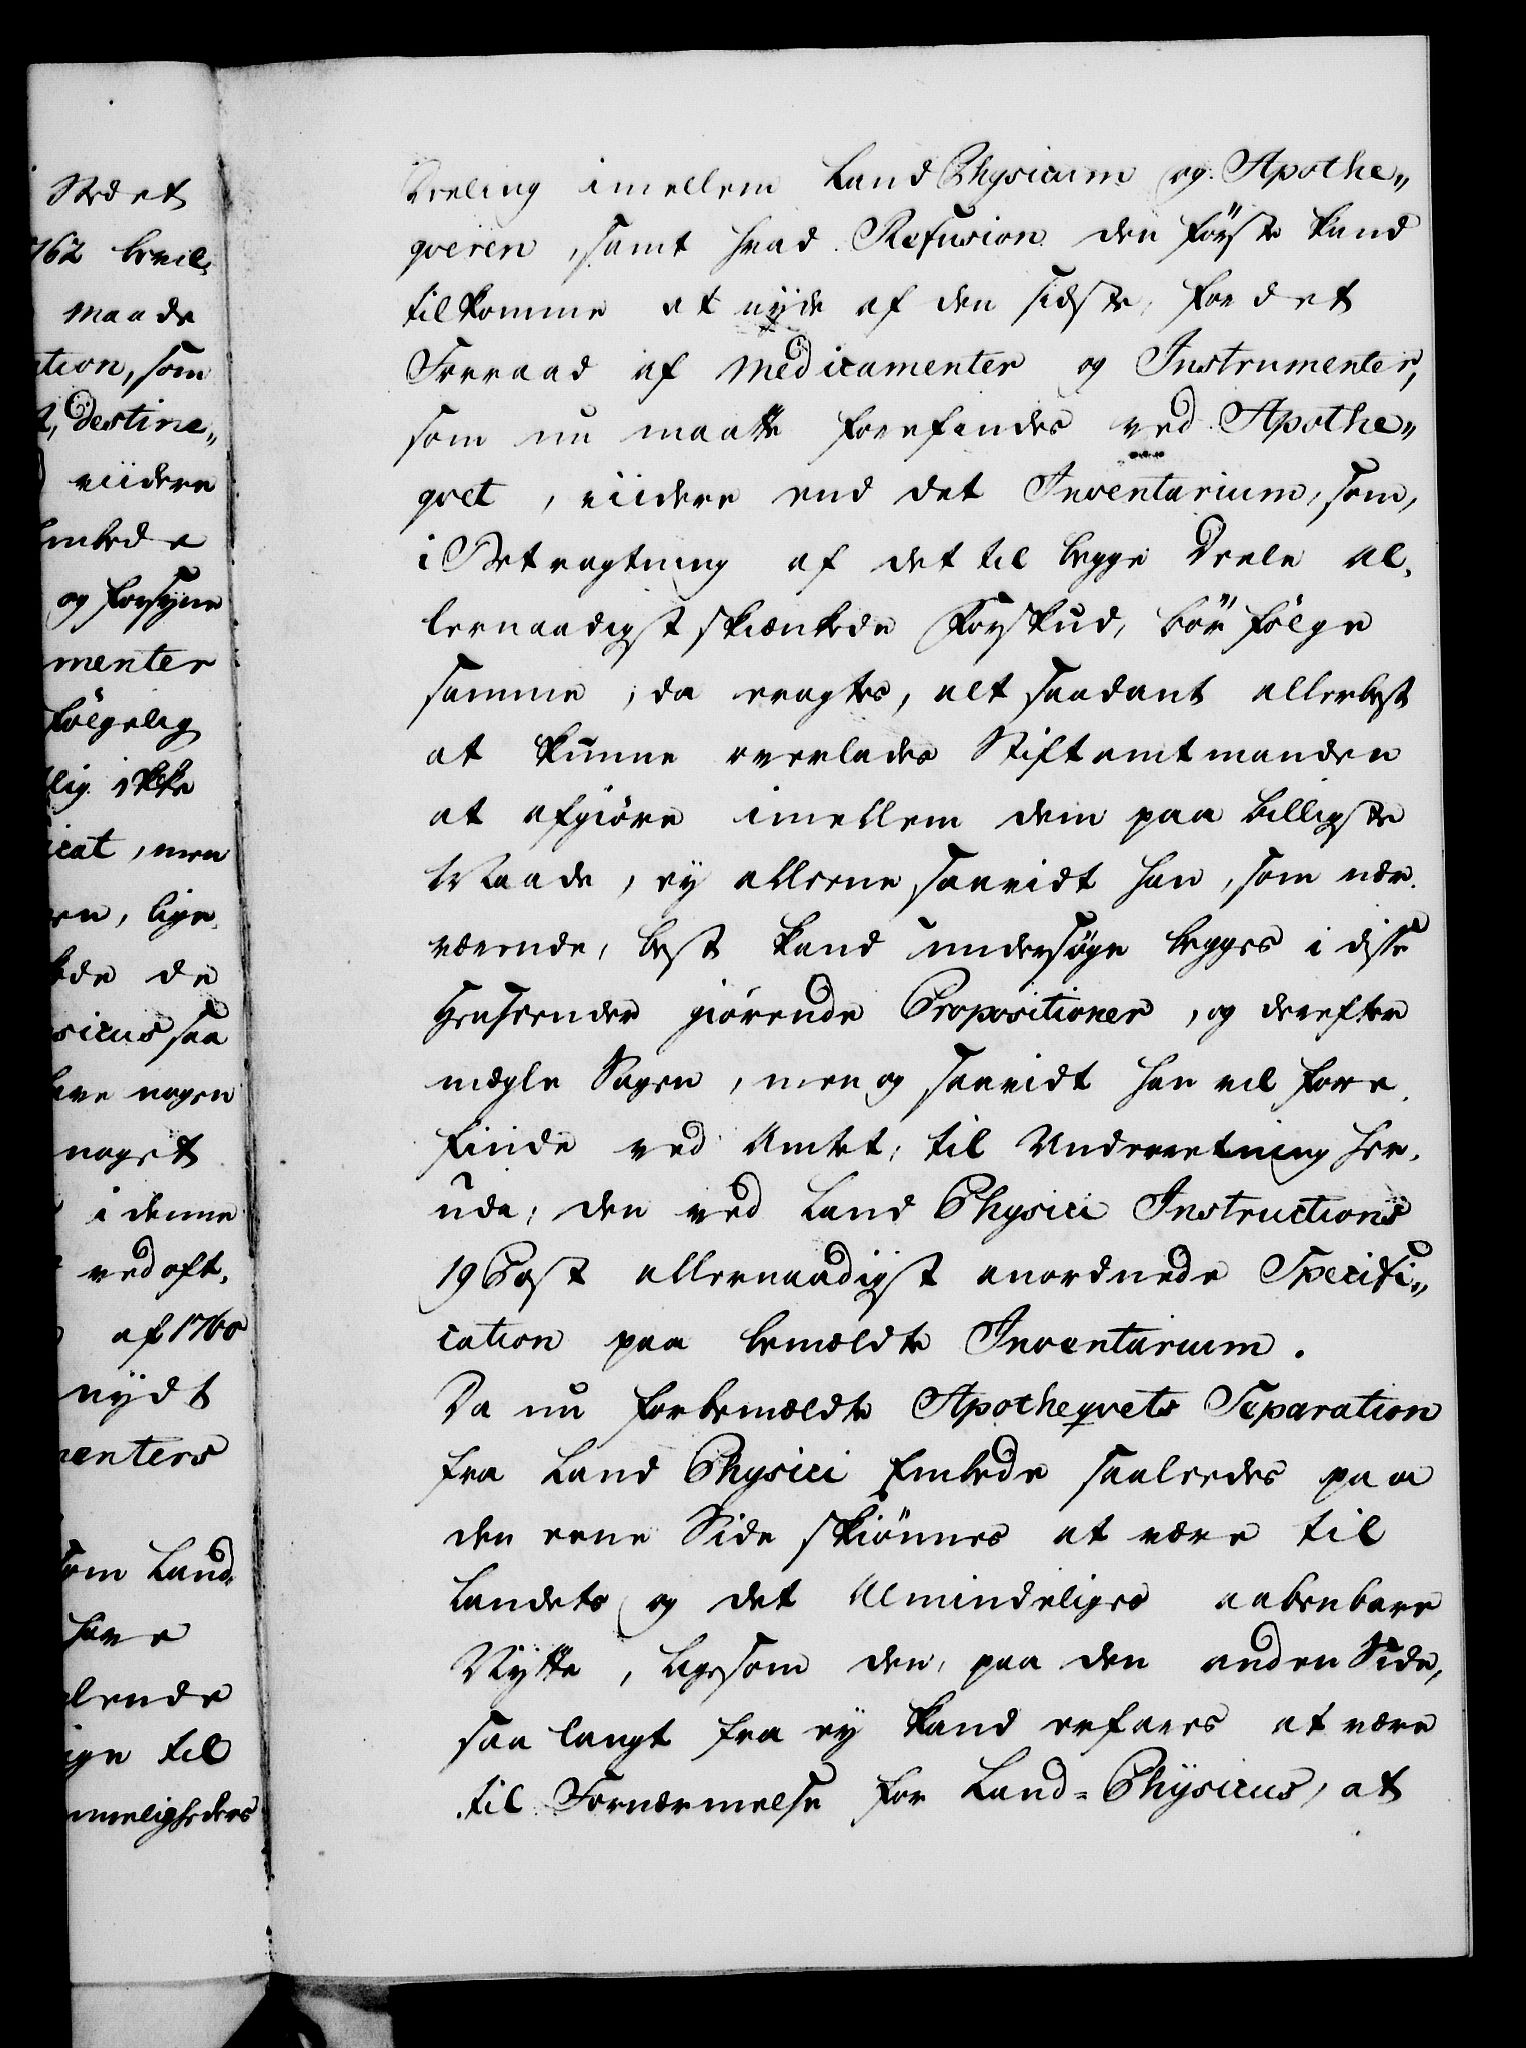 Stedet
762 bevil„
Maade
ation, som
destine„
viidere
Embede
og forsyne
menter
følgelig
lig ikke
icat, men
en, lige„
de de
sicus saa
have nogen
noget
i denne
ved oft„
af 1760
nydt
menters
som Land„
have
lende
ige til
mmeligheders
Deeling imellem Land Physicum og Apothe„
qveren, samt hvad Refusion den første kand
tilkomme at nyde af den sidste, for det
Forraad af Medicamenter og Instrumenter,
som nu maatte forefindes ved Apothe„
qvet, viidere end det Inventarium, som,
i Betragtning af det til begge Deele al„
lernaadigst skienkede Forskud, bör fölge
samme, da eragtes, alt saadant allerbest
at kunne overlades Stiftamtmanden
at afgiøre imellem dem paa billigste
Maade, ey alleene saavidt han, som nær„
værende, best kand undersøge begges i disse
Henseender giørende Propositioner, og derefter
mægle Sagen, men og saavidt han vil fore„
finde ved Amtet, til Underretning her„
ude, den ved Land Physici Instructions
19 Post allernaadigst anordnede Specifi„
cation paa bemeldte Inventarium.
Da nu forbemeldte Apotheqvets Separation
fra Land Physici Embede saaleedes paa
den eene Side skiönnes at være til
Landets og det Almindeliges aabenbare
Nytte, ligesom den, paa den anden Side,
saa langt fra ey kand erfares at være
til Fornærmelse for Land-Physicus, at